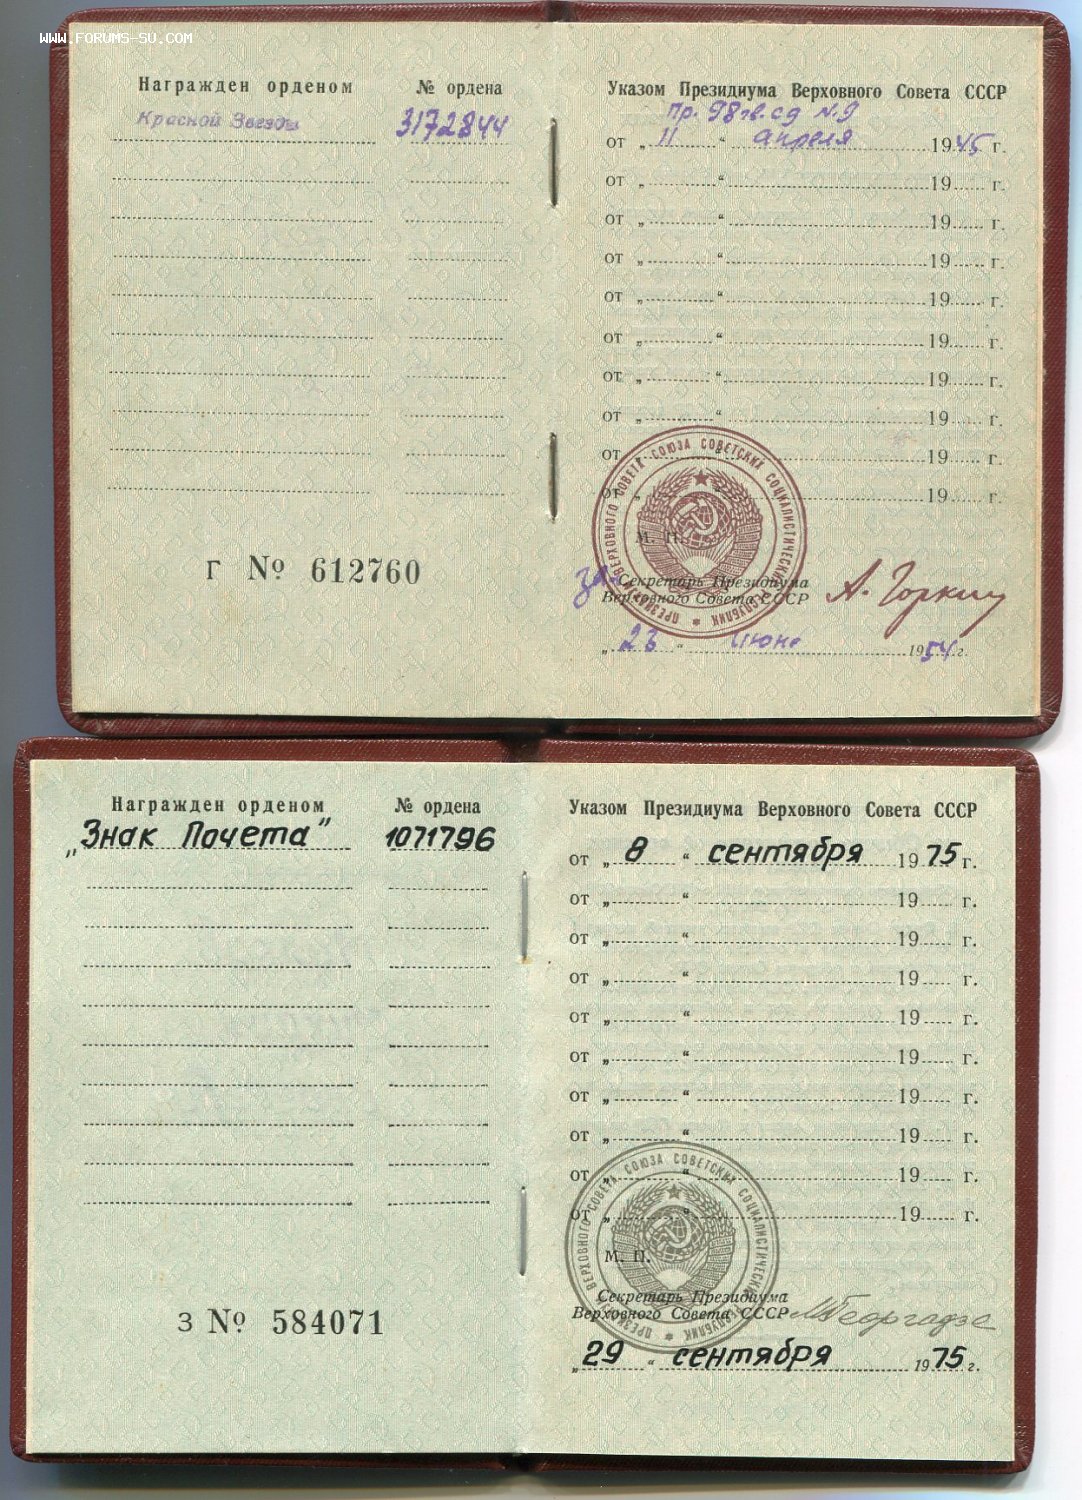 WWW.FORUMS-SU.COM
Награжден орденом № ордена
Красной Звезды 3172844
Указом Президиума Верховного Совета СССР
Пр. 98 гв. сд №9
от „ 11 “ апреля 1945 г.
от „ “ 19 г.
от „ “ 19 г.
от „ “ 19 г.
от „ “ 19 г.
от „ “ 19 г.
от „ “ 19 г.
от „ “ 19 г.
от „ “ 19 г.
от „ “ 19 г.
ПРЕЗИДИУМ ВЕРХОВНОГО СОВЕТА СОЮЗА СОВЕТСКИХ СОЦИАЛИСТИЧЕСКИХ РЕСПУБЛИК
М. П.
За Секретарь Президиума
Верховного Совета СССР А. Горкин
„ 23 “ июня 1954 г.
Г № 612760
Награжден орденом № ордена
„Знак Почета” 1071796
Указом Президиума Верховного Совета СССР
от „ 8 “ сентября 1975 г.
от „ “ 19 г.
от „ “ 19 г.
от „ “ 19 г.
от „ “ 19 г.
от „ “ 19 г.
от „ “ 19 г.
от „ “ 19 г.
от „ “ 19 г.
от „ “ 19 г.
ПРЕЗИДИУМ ВЕРХОВНОГО СОВЕТА СОЮЗА СОВЕТСКИХ СОЦИАЛИСТИЧЕСКИХ РЕСПУБЛИК
М. П.
Секретарь Президиума
Верховного Совета СССР М Георгадзе
„ 29 “ сентября 1975 г.
З № 584071